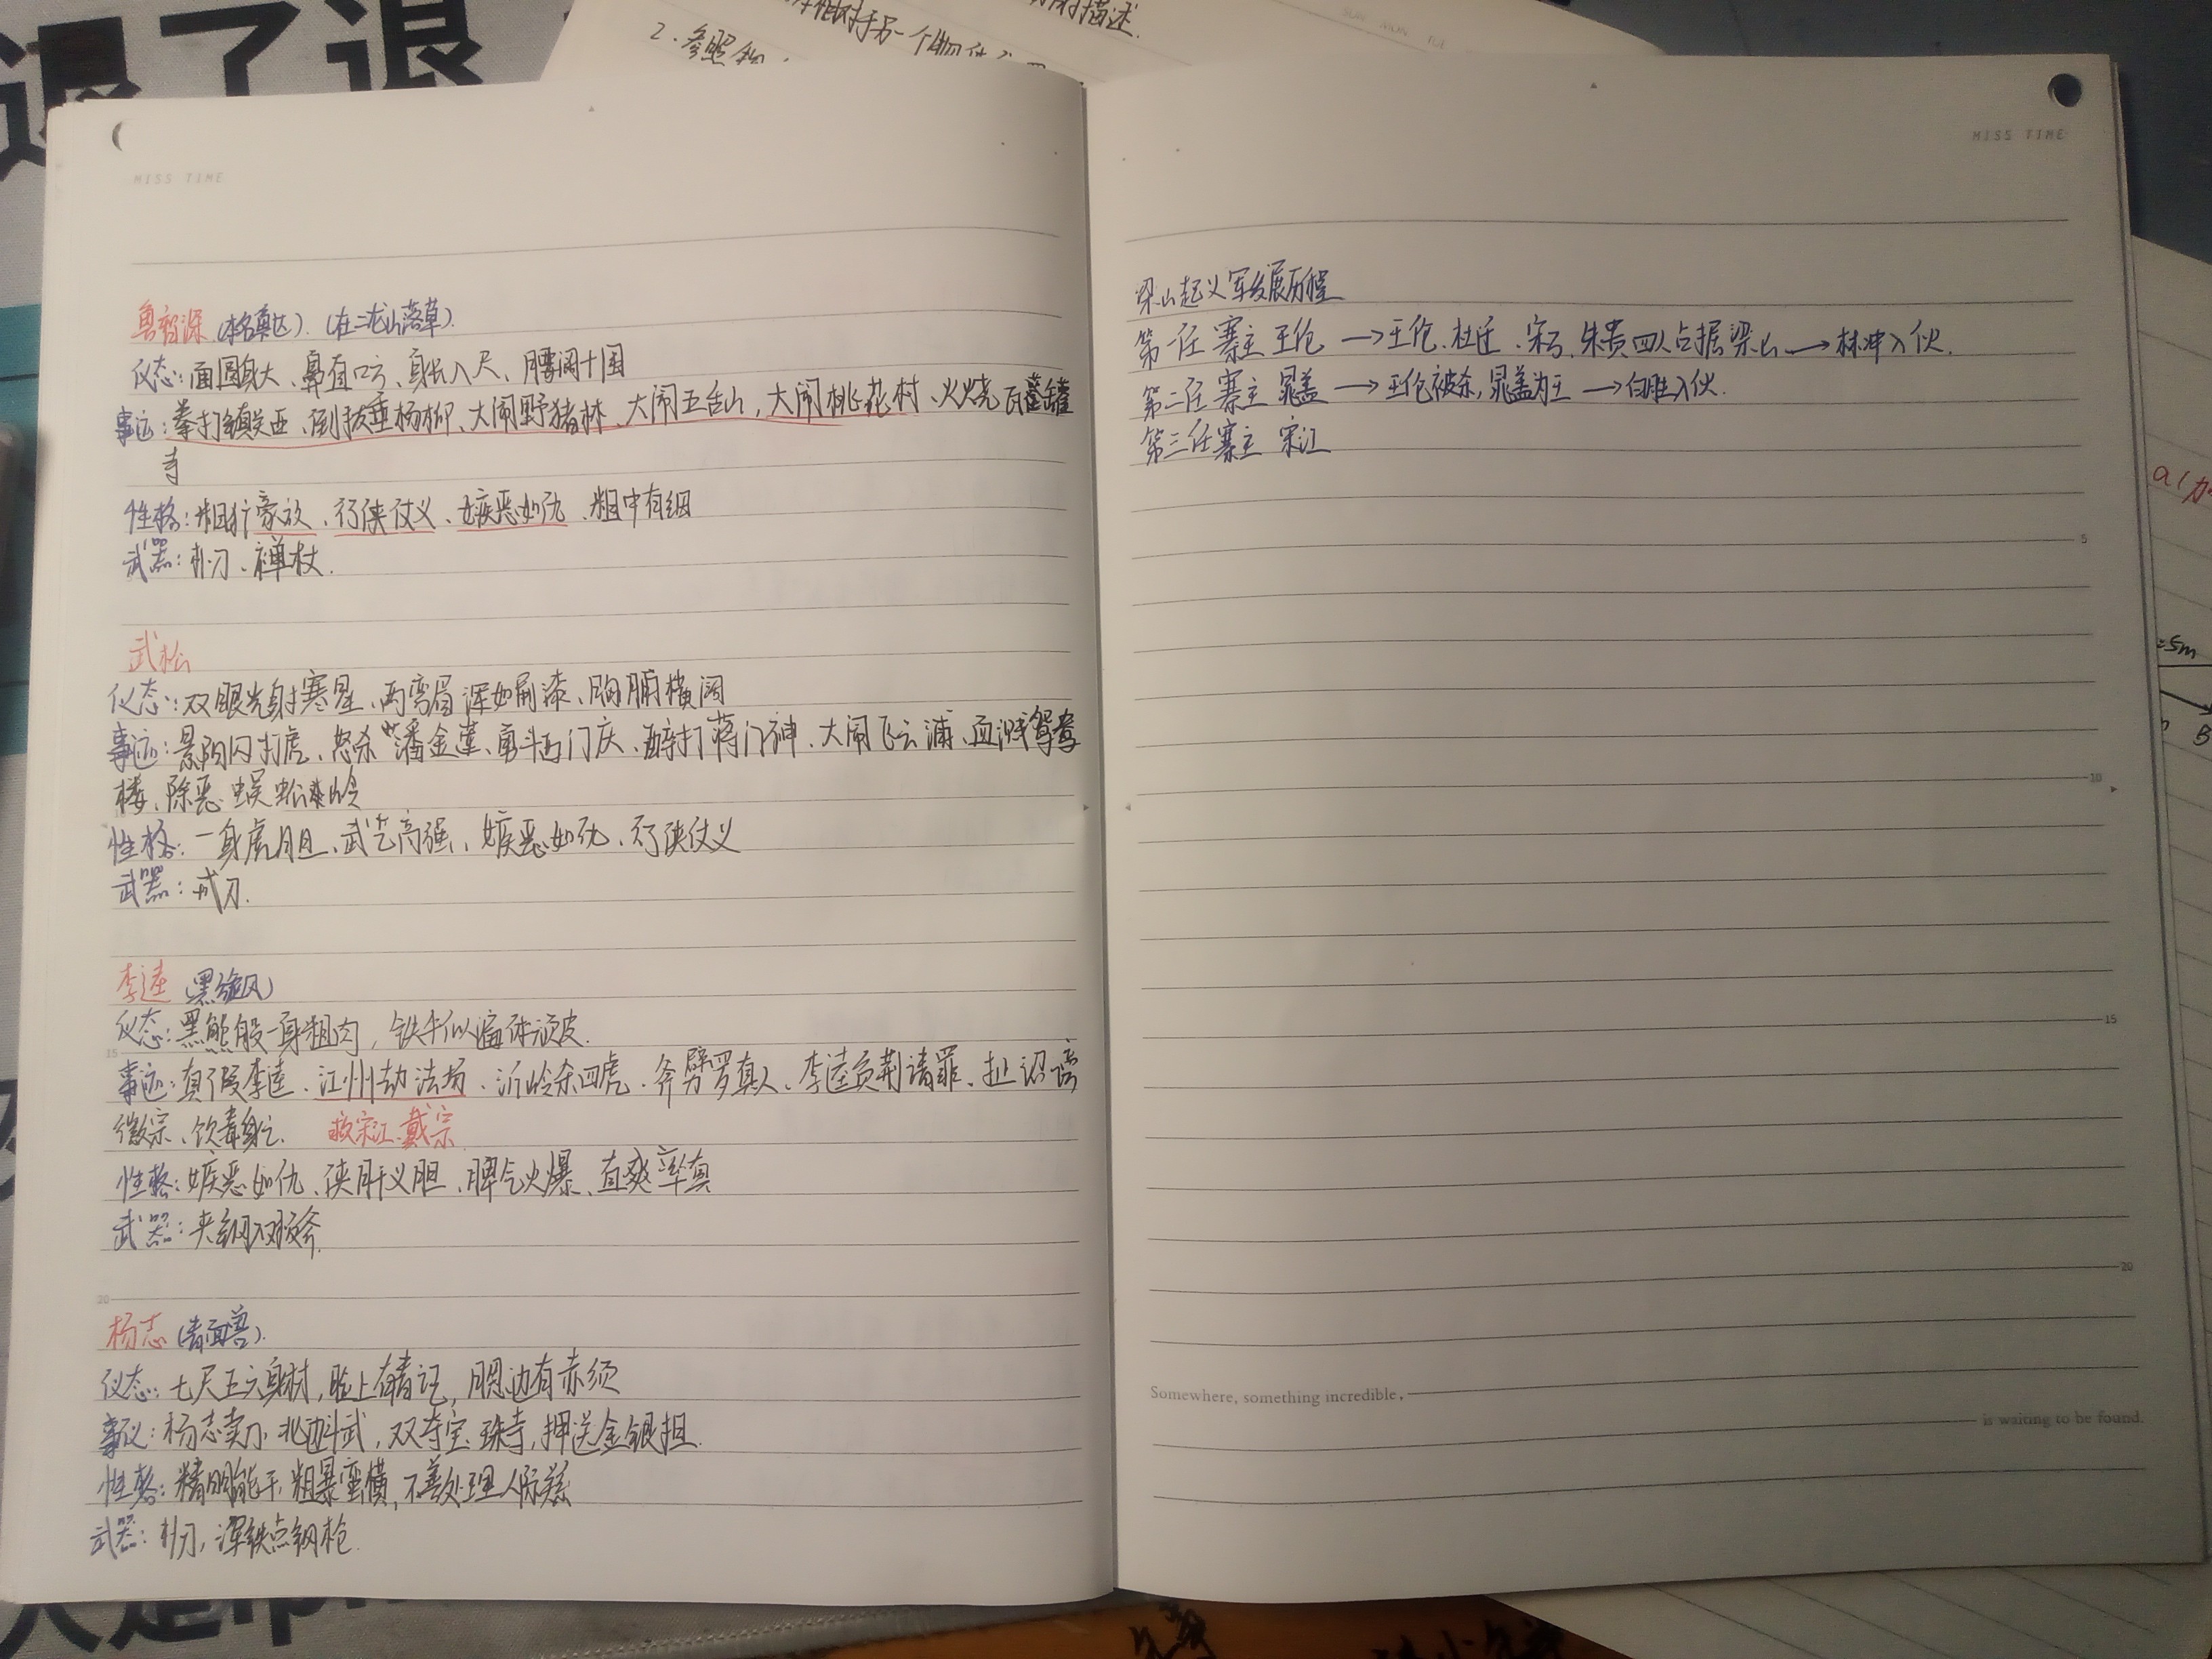 退了退
2.参照物
MISS TIME
鲁智深(本名鲁达).(在二龙山落草).
仪态:面圆身大、鼻直口方、身长八尺、腰阔十围
事迹:拳打镇关西、倒拔垂杨柳、大闹野猪林、大闹五台山,大闹桃花村、火烧瓦罐
寺
性格:粗犷豪放、行侠仗义、嫉恶如仇、粗中有细
武器:朴刀、禅杖.
武松
仪态:双眼光射寒星、两弯眉浑如刷漆、胸脯横阔
事迹:景阳冈打虎、怒杀潘金莲、勇斗西门庆、醉打蒋门神、大闹飞云浦、血溅鸳鸯
楼、除恶蜈蚣岭
性格:一身虎胆、武艺高强、嫉恶如仇、行侠仗义
武器:戒刀.
李逵 (黑旋风)
仪态:黑熊般一身粗肉,铁牛似遍体顽皮.
15
事迹:真假李逵、江州劫法场、沂岭杀四虎、斧劈罗真人、李逵负荆请罪、扯诏谤
徽宗、饮毒身亡. 救宋江.戴宗
性格:嫉恶如仇、侠肝义胆、脾气火爆、直爽率真
武器:夹钢双板斧.
20
杨志 (青面兽).
仪态:七尺五六身材,脸上有青记,腮边有赤须
事仪:杨志卖刀,北边斗武,双夺宝珠寺,押送金银担.
性格:精明能干,粗暴蛮横,不善处理人际关系
武器:朴刀,浑铁点钢枪.
MISS TIME
梁山起义军发展历程
第一任寨主 王伦 →王伦、杜迁、宋万、朱贵四人占据梁山→林冲入伙.
第二任寨主 晁盖 →王伦被杀,晁盖为王→白胜入伙.
第三任寨主 宋江
5
10
15
20
Somewhere, something incredible,
is waiting to be found.
=5m
B